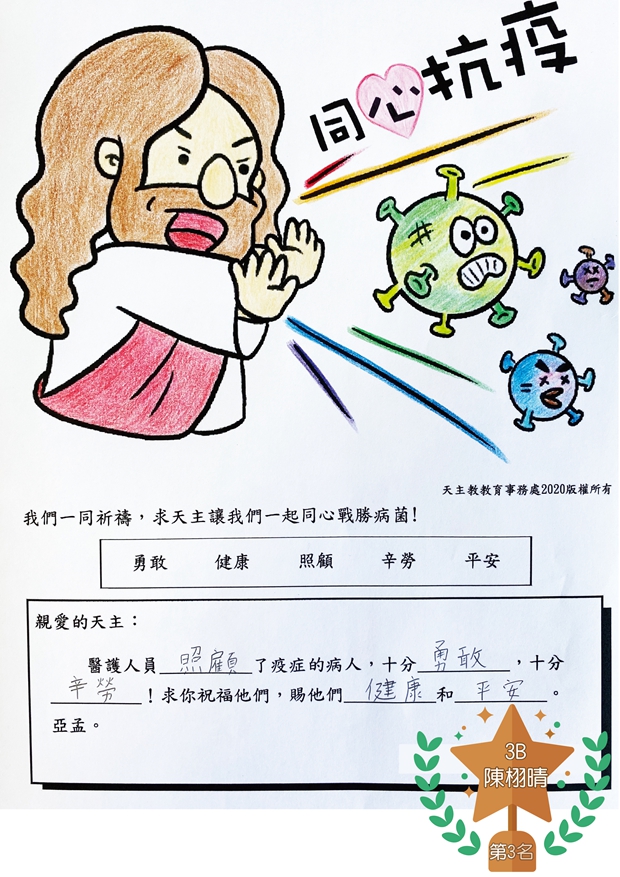 同心抗疫
天主教教育事務處2020版權所有
我們一同祈禱，求天主讓我們一起同心戰勝病菌！
勇敢 健康 照顧 辛勞 平安
親愛的天主：
醫護人員照顧了疫症的病人，十分勇敢，十分
辛勞！求你祝福他們，賜他們健康和平安。
亞孟。
3B
陳栩晴
第3名